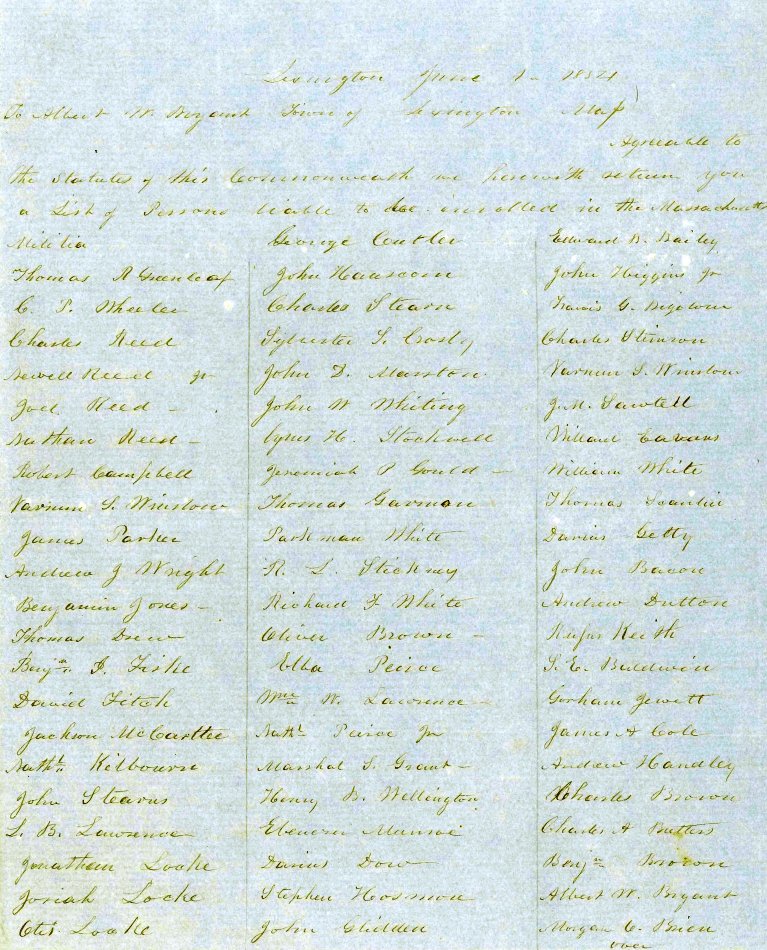 Lexington June 1 - 1852
To Albert W. Bryant Town of Lexington
Agreeable to
the Statutes of this Commonwealth we herewith return you
a List of Persons liable to be enrolled in the Massachusetts
Militia
Thomas R Greenleaf
C. P. Wheeler
Charles Reed
Newell Reed Jr
Joel Reed -
Nathan Reed -
Robert Campbell
Varnum S. Winslow
James Parker
Andrew J Wright
Benjamin Jones -
Thomas Drew
Benjn. Fiske
David Fitch
Jackson McCartlee
Nathl. Kilbourn
John Stearns
S. B. Lawrence
Jonathan Locke
Josiah Locke
Otis Locke
George Cutler
John Hanscom
Charles Stearn
Sylvester S. Crosby
John D. Marston.
John W Whiting
Cyrus H. Stockwell
Jeremiah P Gould -
Thomas Garman
Parkman White
R. L. Stickney
Richard F White
Oliver Brown -
Elba Peirce
Wm W. Lawrence
Nathl. Peirce Jr
Marshal S. Grant -
Henry B. Wellington
Ebenezer Munroe
Darius Dow
Stephen Hosmon
John Glidden
Edward B. Bailey
John Higgins Jr
Francis G. Bigelow
Charles Stimson
Varnum S. Winslow
J. M. Sawtell
Willard
William White
Thomas
Darius Getty
John Bacon
Andrew Dutton
Rufus Keith
S. E. Baldwin
Gorham Jewett
James A Cole
Andrew Handley
Charles Brown
Charles A Butters
Benjn Brown
Albert W. Bryant
Morgan C. Brien
over